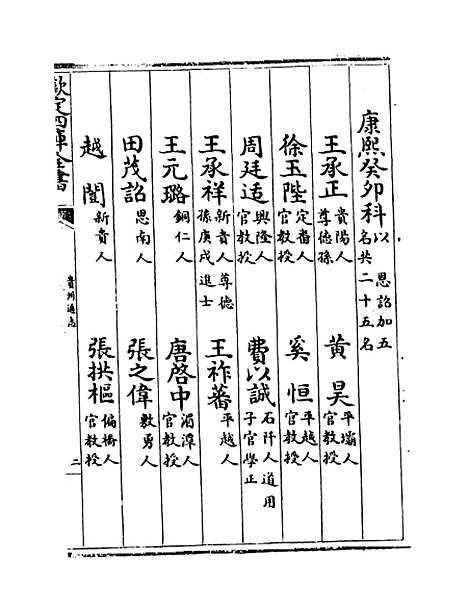 康熙癸卯科以恩詔加五名共二十五名
王承正貴陽人尊德孫
黄昊平壩人官教授
徐玉陛定番人官教授
奚恒平越人官教授
周廷适興隆人官教授
費以誠石阡人道用子官學正
王承祥新貴人尊德孫庚戌進士
王祚蕃平越人
王元璐銅仁人
唐啓中湄潭人官教授
田茂詔思南人
張之偉敷勇人
越闓新貴人
張拱樞偏橋人官教授
欽定四庫全書
貴州通志
二